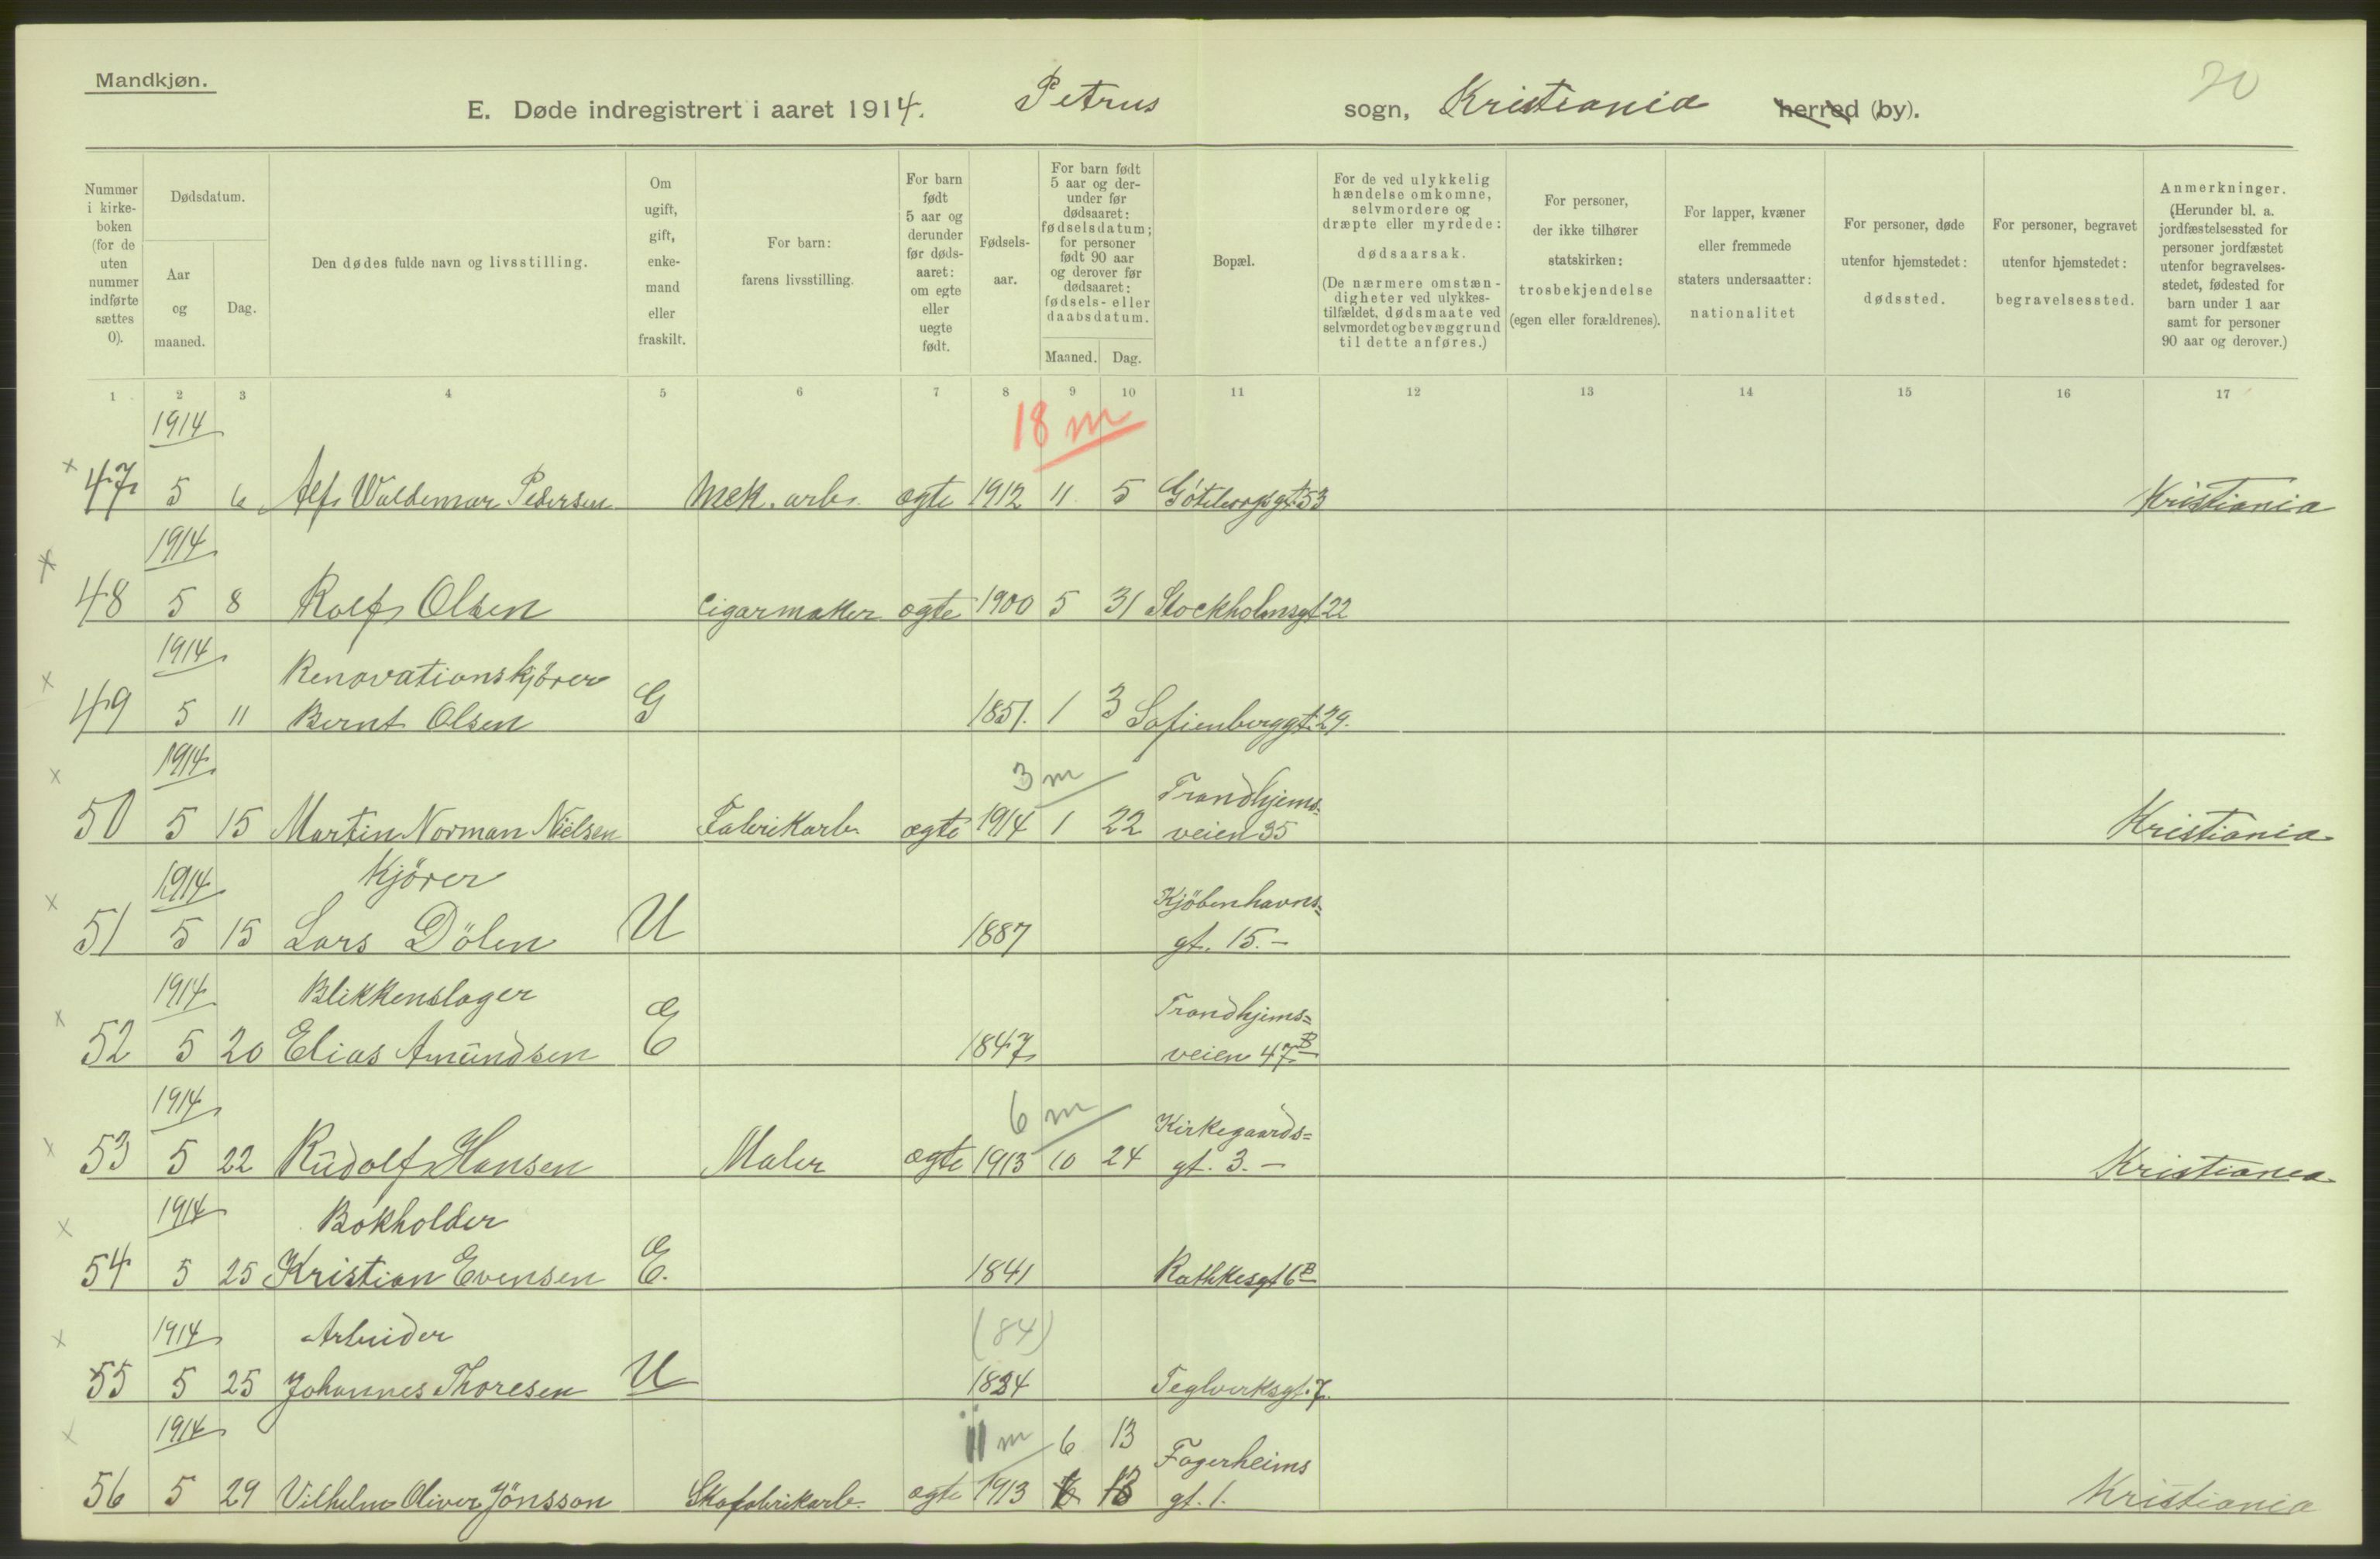 Mandkjøn.
20
E. Døde indregistrert i aaret 1914. Petrus sogn, Kristiania herred (by).
Nummer i kirke- boken (for de uten nummer indførte sættes 0).
Dødsdatum.
Aar og maaned.
Dag.
Den dødes fulde navn og livsstilling.
Om ugift, gift, enke- mand eller fraskilt.
For barn: farens livsstilling.
For barn født 5 aar og derunder før døds- aaret: om egte eller uegte født.
Fødsels- aar.
For barn født 5 aar og der- under før dødsaaret: fødselsdatum; for personer født 90 aar og derover før dødsaaret: fødsels- eller daabsdatum.
Maaned. Dag.
Bopæl.
For de ved ulykkelig hændelse omkomne, selvmordere og dræpte eller myrdede: dødsaarsak. (De nærmere omstæn- digheter ved ulykkes- tilfældet, dødsmaate ved selvmordet og bevæggrund til dette anføres.)
For personer, der ikke tilhører statskirken: trosbekjendelse (egen eller forældrenes).
For lapper, kvæner eller fremmede staters undersaatter: nationalitet
For personer, døde utenfor hjemstedet: dødssted.
For personer, begravet utenfor hjemstedet: begravelsessted.
Anmerkninger. (Herunder bl. a. jordfæstelsessted for personer jordfæstet utenfor begravelses- stedet, fødested for barn under 1 aar samt for personer 90 aar og derover.)
1 2 3 4 5 6 7 8 9 10 11 12 13 14 15 16 17
1914 18 m
x 47 5 6 Alf Waldemar Pedersen Mek. arb. ægte 1912 11 5 Göteborgsgt. 53 Kristiania
1914
x 48 5 8 Rolf Olsen Cigarmaker ægte 1900 5 31 Stockholmsgt 22
1914 Renovationskjörer
x 49 5 11 Bernt Olsen G 1851. 1 3 Sofienberggt. 29.
1914 3 m Trondhjems=
x 50 5 15 Martin Norman Nielsen Fabrikarb. ægte 1914 1 22 veien 35 Kristiania
1914 Kjörer Kjöbenhavns=
x 51 5 15 Lars Dölen U 1887 gt. 15. –
1914 Blikkenslager Trondhjems=
x 52 5 20 Elias Amundsen E 1847 veien 47 B
1914 6 m Kirkegaards=
x 53 5 22 Rudolf Hansen Maler ægte 1913 10 24 gt. 3. – Kristiania
1914 Bokholder
x 54 5 25 Kristian Evensen E. 1841 Rathkesgt 6 B
1914 Arbeider (84)
x 55 5 25 Johannes Thoresen U 1834 Teglverksgt. 7.
1914 11 m 6 13 Fagerheims
x 56 5 29 Vilhelm Oliver Jönsson Skofabrikarb. ægte 1913 6 13 gt. 1. Kristiania